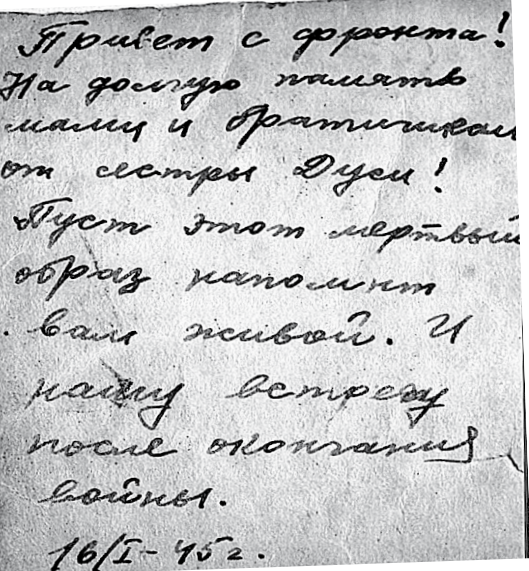 Привет с фронта!
На долгую память
маме и братишкам
от сестры Дуси!
Пуст этот мертвый
образ напомнит
вам живой. И
нашу встречу
после окончания
войны.
16/I-45г.